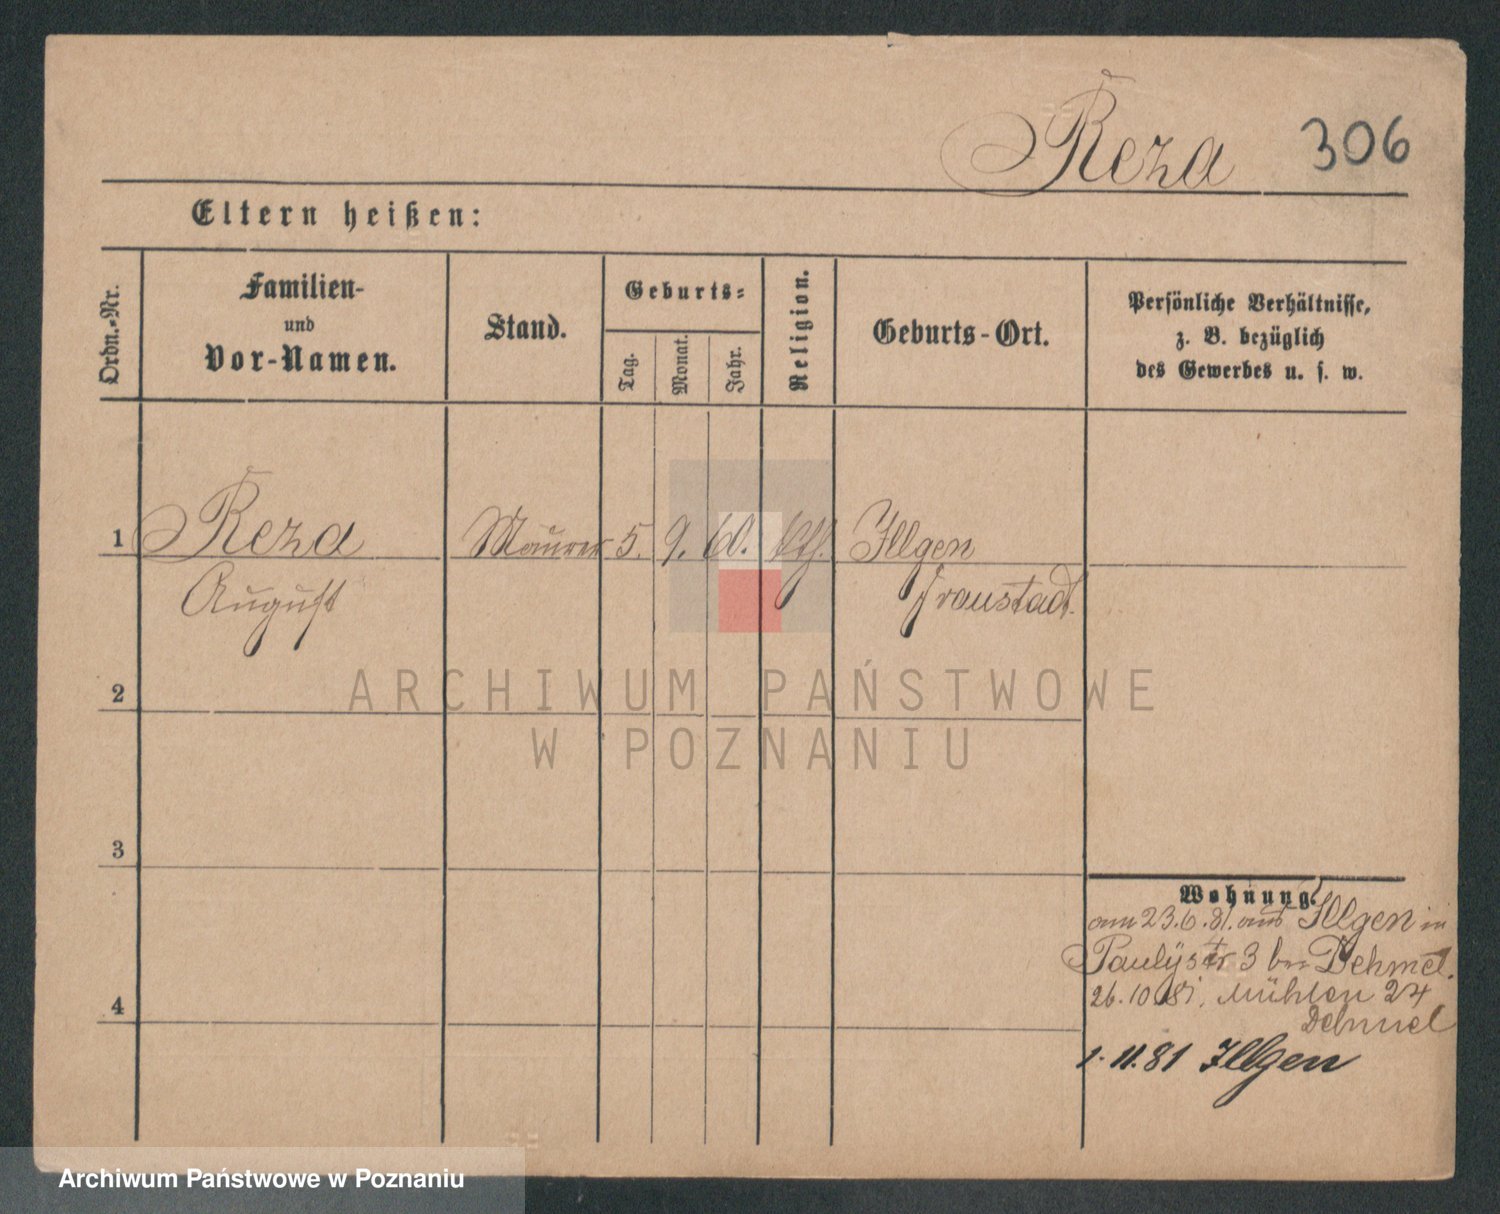 Reza 306
Eltern heißen:
Ordn.-Nr.
Familien-
und
Vor-Namen.
Stand.
Geburts-
Tag.
Monat.
Jahr.
Religion.
Geburts-Ort.
Persönliche Verhältnisse,
z. B. bezüglich
des Gewerbes u. s. w.
1 Reza Maurer 5. 9. 60. kth. Illgen
August Fraustadt.
2
ARCHIWUM PAŃSTWOWE
W POZNANIU
3
Wohnung.
am 23.6.81. aus Illgen in
Paulystr 3 bei Dehmel.
26.10 81. Mühlen 24
4
Dehmel
1.11.81 Illgen
Archiwum Państwowe w Poznaniu